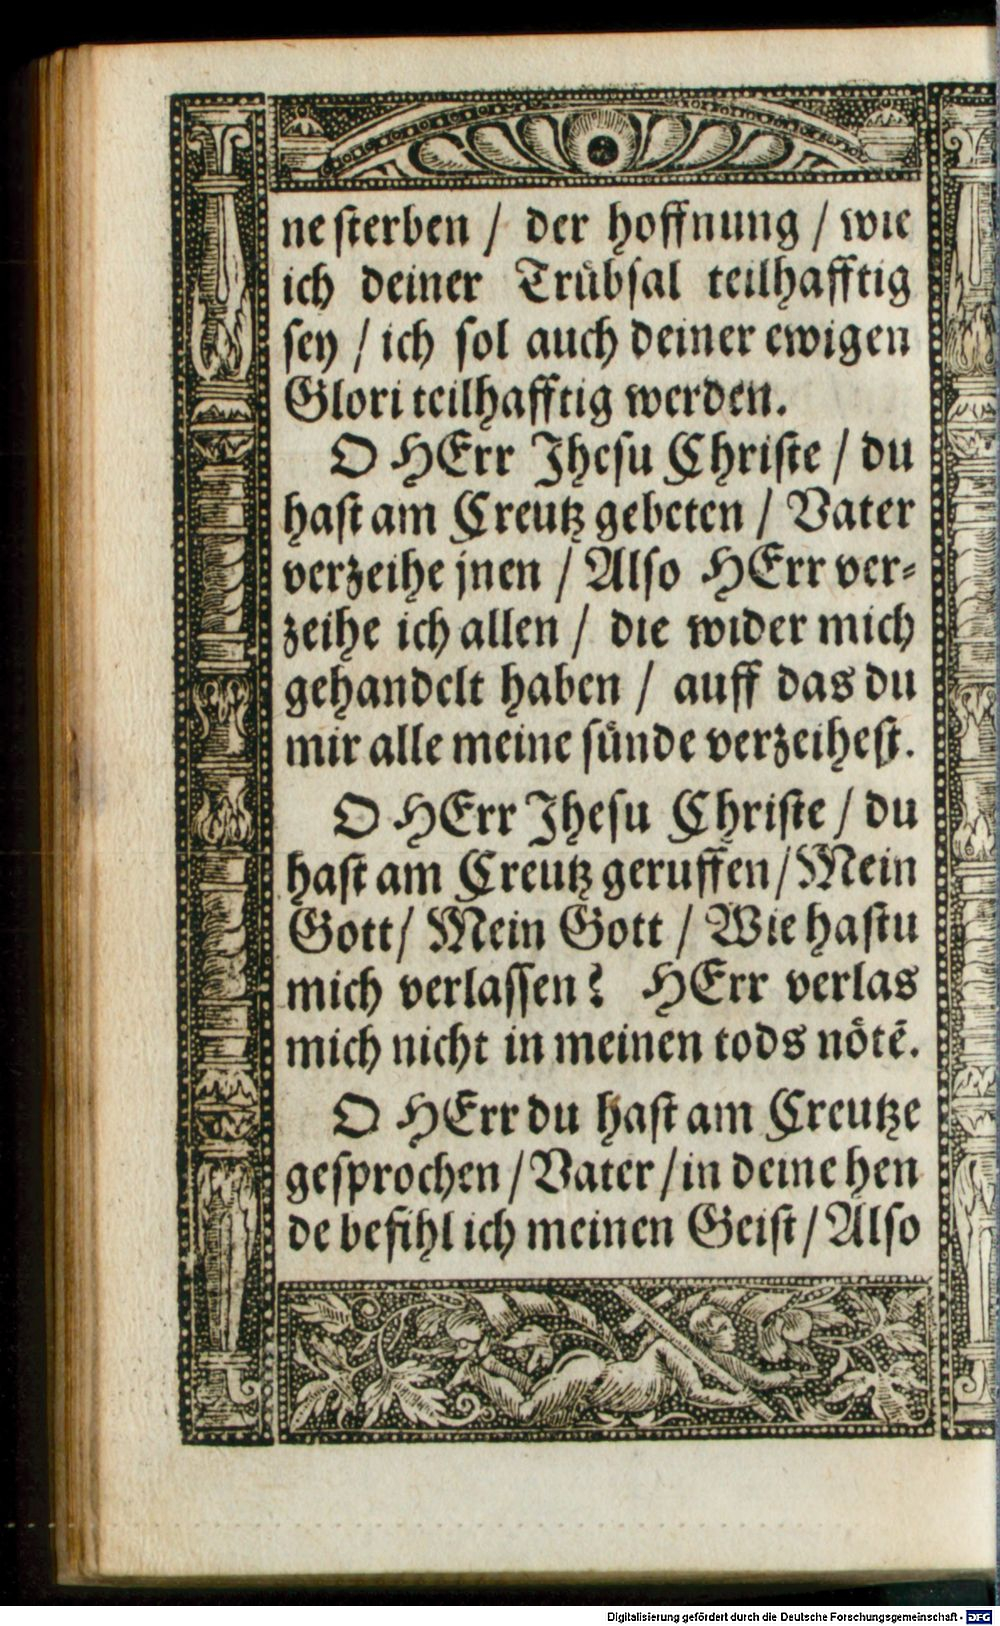 ne sterben / der hoffnung / wie
ich deiner Trübsal teilhafftig
sey / ich sol auch deiner ewigen
Glori teilhafftig werden.
O HErr Jhesu Christe / du
hast am Creutz gebeten / Vater
verzeihe jnen / Also HErr ver⸗
zeihe ich allen / die wider mich
gehandelt haben / auff das du
mir alle meine sünde verzeihest.
O HErr Jhesu Christe / du
hast am Creutz geruffen / Mein
Gott / Mein Gott / Wie hastu
mich verlassen? HErr verlas
mich nicht in meinen tods nötē.
O HErr du hast am Creutze
gesprochen / Vater / in deine hen
de befihl ich meinen Geist / Also
Digitalisierung gefördert durch die Deutsche Forschungsgemeinschaft - DFG